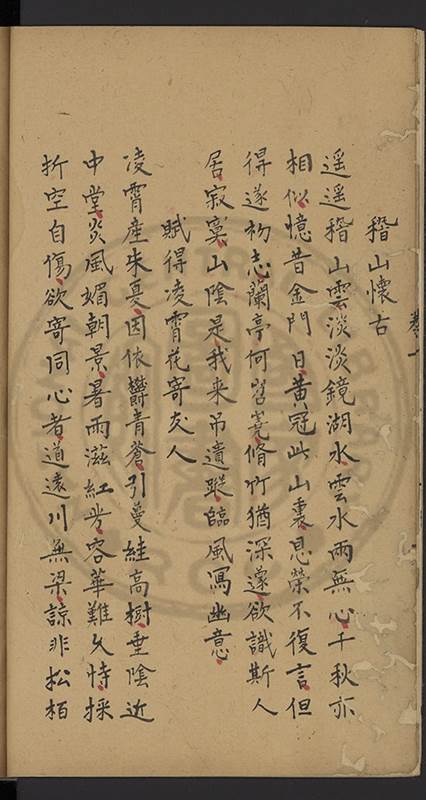 稽山懷古
遥遥稽山雲淡淡鏡湖水雲水兩無心千秋亦
相似憶昔金門日黄冠此山裏恩榮不復言但
得遂初志蘭亭何寂寞脩竹猶深邃欲識斯人
居寂寞山陰是我来吊遺蹤臨風寫幽意
賦得凌霄花寄友人
凌霄産朱夏因依鬱青蒼引蔓絓高樹垂陰近
中堂炎風媚朝景暑雨滋紅芳容華難久恃採
折空自傷欲寄同心者道遠川無梁諒非松栢